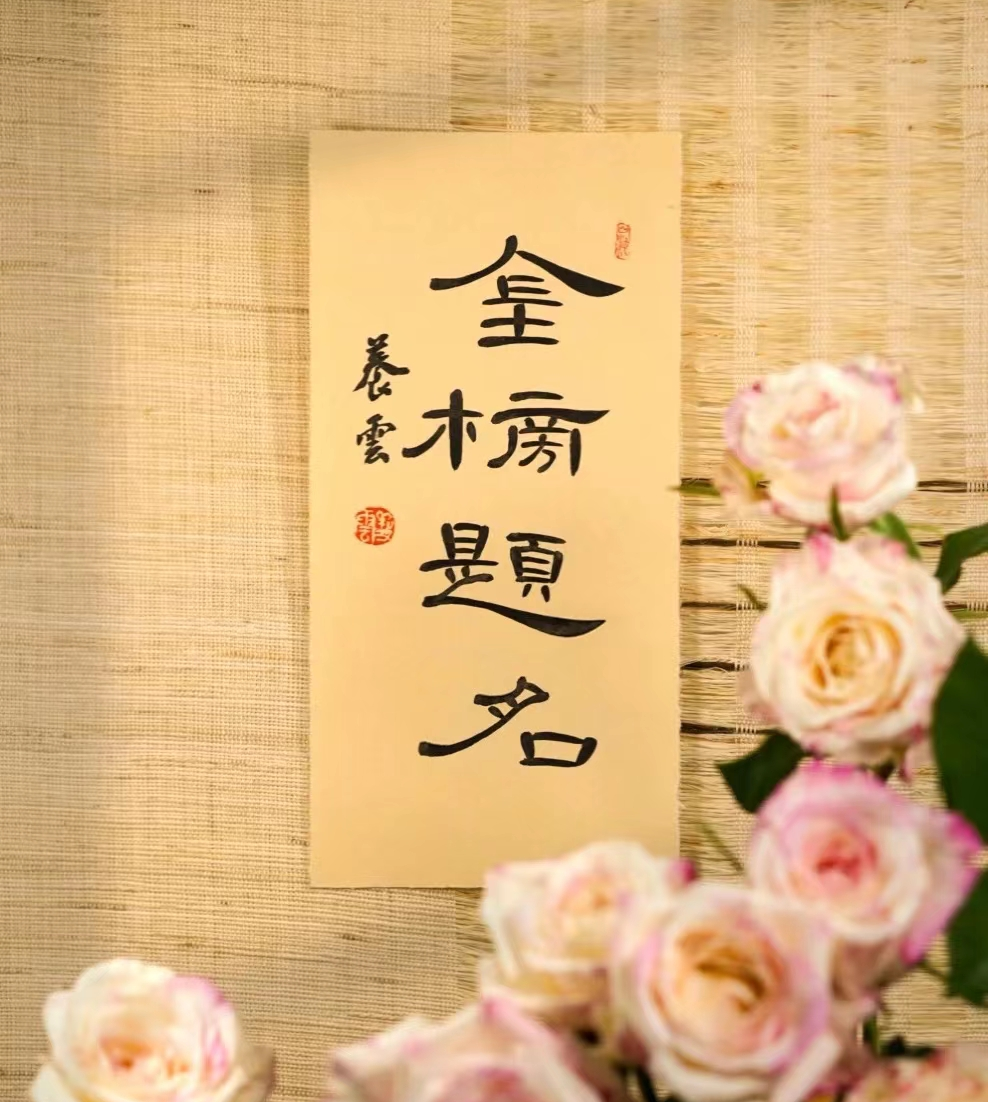 金榜題名
養雲